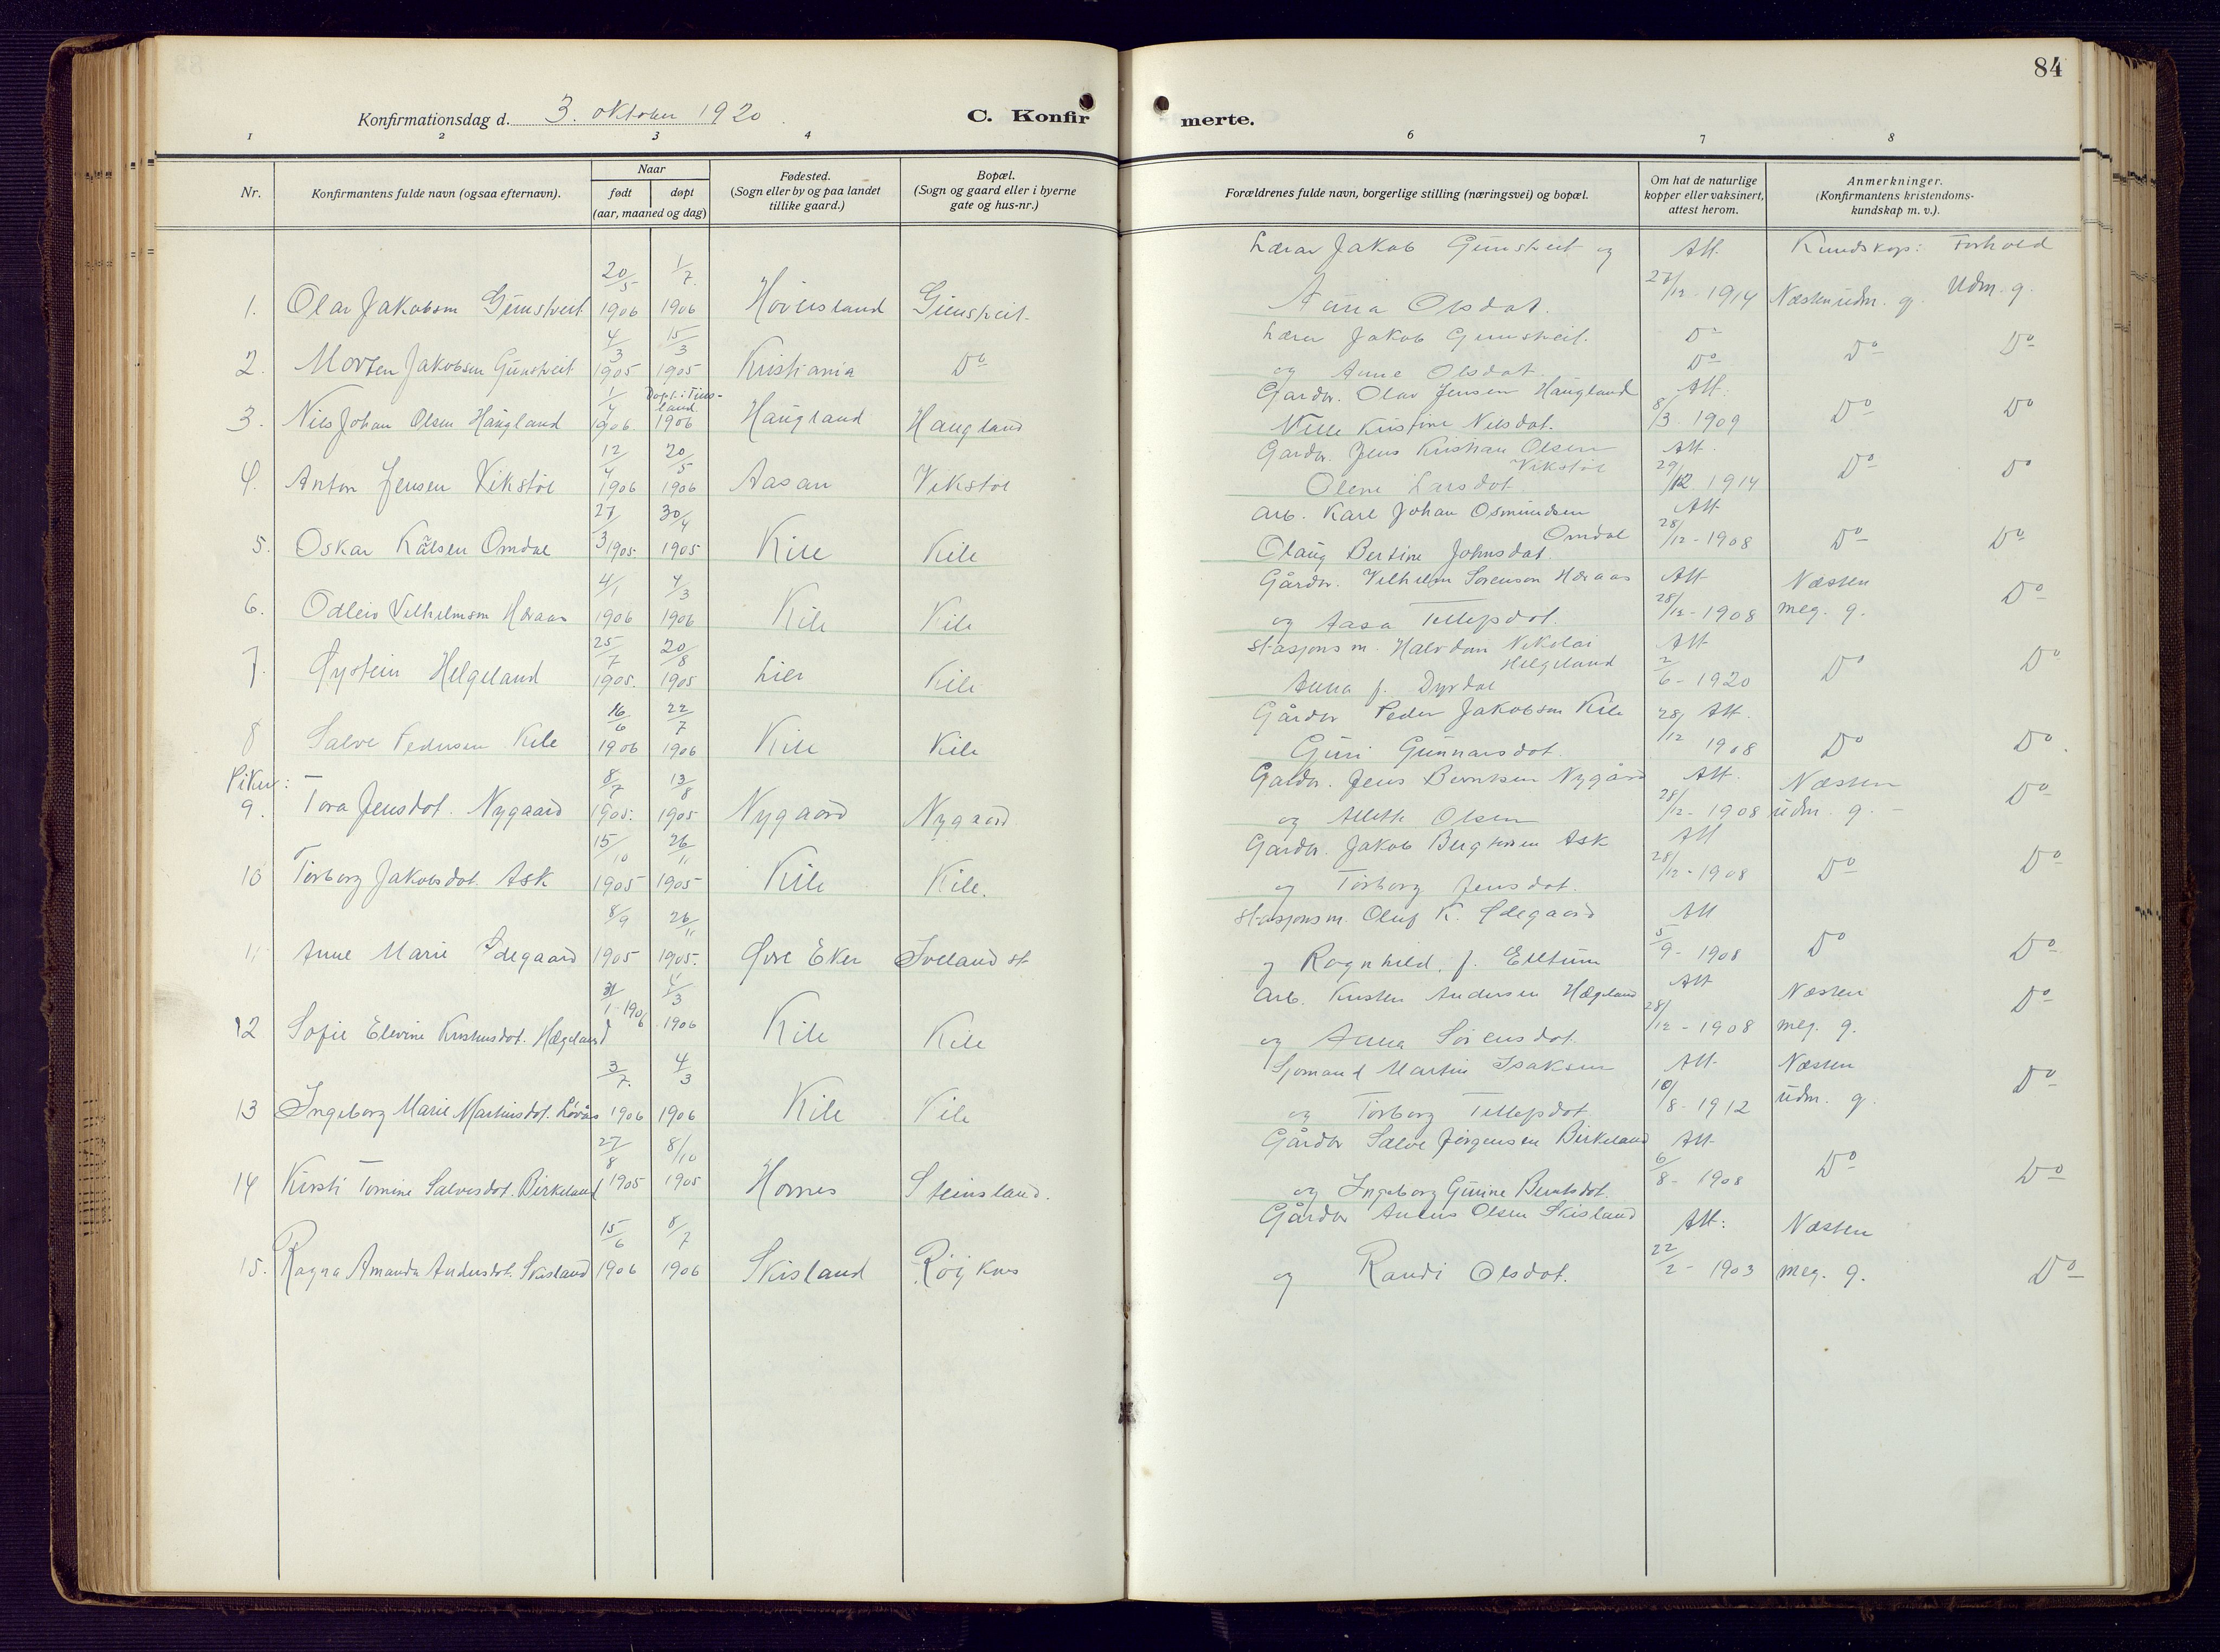 84
Konfirmationsdag d. 3. oktober 1920
C. Konfirmerte.
1 2 3 4 6 7 8
Nr. Konfirmantens fulde navn (ogsaa efternavn). Naar født døpt (aar, maaned og dag) Fødested. (Sogn eller by og paa landet tillike gaard.) Bopæl. (Sogn og gaard eller i byerne gate og hus-nr.) Forældrenes fulde navn, borgerlige stilling (næringsvei) og bopæl. Om hat de naturlige kopper eller vaksinert, attest herom. Anmerkninger. (Konfirmantens kristendoms-kundskap m. v.).
Kundskap: Forhold
1. Olav Jakobsen 20/5 1906 1/7 1906 Höversland Lærar Jakob og Anna Olsdat. Att. 27/12 - 1914 Næsten udm. g. Udm. g.
2. Morten Jakobsen 4/3 1905 15/3 1905 Kristiania Do Lærer Jakob og Anne Olsdat. Do Do Do Do
3. Nils Johan Olsen Haugland 1906 1906 Haugland Haugland Gårdbr. Olav Jensen Haugland Kristine Nilsdat. Att. 8/3 1909 Do Do
4. Anton Jensen Vikstöl 12/4 1906 20/5 1906 Aasan Vikstöl Gardbr. Jens Kristian Olsen Vikstöl Olene Larsdot. Att. 29/12 1914 Do Do
5. Oskar Kålsen Omdal 27/3 1905 30/4 1905 Kile Kile Arb. Karl Johan Osmundsen Omdal Olaug Bertine Johnsdat. Att 28/12 - 1908 Do Do
6. Odleiv Vilhelmsen 4/1 1906 4/3 1906 Kile Kile Gårdbr. Vilhelm Sørensen og Aasa Tellefsdot. Att 28/12 - 1908 Næsten meg. g. Do
7. Øystein Helgeland 25/7 1905. 20/8 1905 Lier Kile Stasjonsm. Halvdan Nikolai Helgeland Anna f. Dyrdal Att 2/6 - 1920 Do Do
8 Salve Pedersen Kile 16/6 1906 22/7 1906 Kile Kile Gårdbr Peder Jakobsen Kile Guri Gunnarsdot. 28/12 Att. 1908 Do Do
Piker:
9. Tora Jensdot. Nygaard 8/7 1905. 13/8 1905 Nygaard Nygaard Gardbr. Jens Berntsen Nygård og Olsen Att. 28/12 - 1908 Næsten udm. g. Do
10 Torborg Jakobsdot. Ask 15/10 1905 26/11 1905 Kile Kile. Gårdbr. Jakob Bergtesen Ask og Torborg Jensdot. Att 28/12 - 1908 Do Do
11 Anne Marie Ødegaard 8/9 1905 26/11 1905. Øvre Eker Iveland st. Stasjonsm. Oluf K. Ødegaard og Ragnhild f. Elltun Att 5/9 - 1908 Do Do
12 Sofie Elevine Kristensdot. Hægeland 31/1 - 1906 4/3 1906 Kile Kile Arb. Kristen Andersen Hægeland og Anna Sörensdot. Att 28/12 - 1908 Næsten meg. g. Do
13 Ingeborg Marie Martinsdot. Løvås 3/7. 1906 4/3 1906 Kile Kile Sjømand Martin Isaksen og Torborg Tellefsdot. Att. 10/8 - 1912 Næsten udm. g. Do
14 Kirsti Tomine Salvesdot. Birkeland 27/8 1905 8/10 1905 Hornes Steinsland. Gårdbr Salve Jørgensen Birkeland og Ingeborg Gurine Berntsdot. Att 6/8 - 1908 Do Do
15. Ragna Amanda Andersdot. Skisland 15/6 1906 8/7 1906 Skisland Röyknes Gårdbr Anders Olsen Skisland og Randi Olsdot. Att: 22/2 - 1903 Næsten meg. g. Do